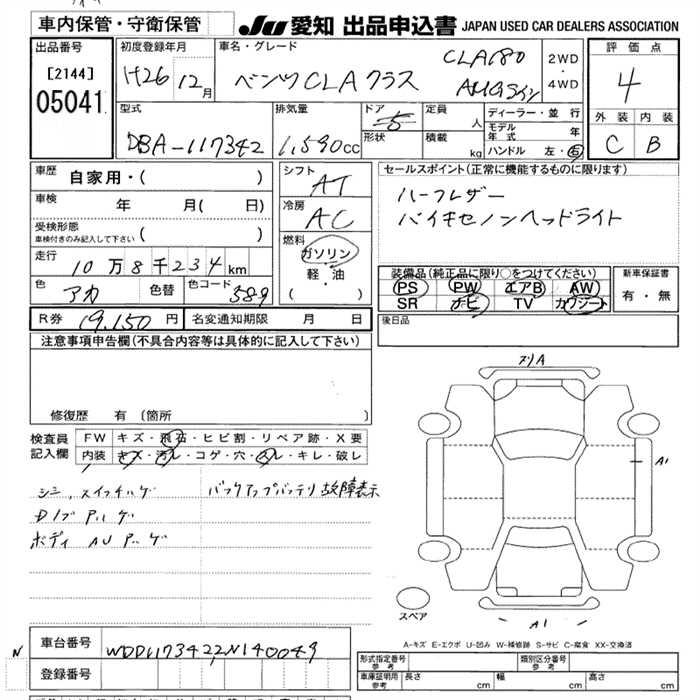 車内保管・守衛保管
JU 愛知 出品申込書 JAPAN USED CAR DEALERS ASSOCIATION
出品番号
[2144]
05041
初度登録年月
H26 12月
車名・グレード
ベンツCLAクラス
CLA180
AMGライン
2WD
・
4WD
評価点
4
外装 内装
C B
型式
DBA-117342
排気量
1,590cc
ドア
5
形状
定員
人
積載
kg
ディーラー・並行
モデル年式 年
ハンドル 左・右
車歴
自家用・( )
車検
年 月( 日)
受検形態
車検付きのみ記入して下さい
( )
走行
10万8千234km
色
アカ
色替
色コード
589
シフト
AT
冷房
AC
燃料
ガソリン
・
軽・油
( )
セールスポイント(正常に機能するものに限ります)
ハーフレザー
バイキセノンヘッドライト
装備品(純正品に限り○をつけてください)
PS PW エアB AW
SR ナビ TV カワシート
新車保証書
有・無
R券 19,150円
名変通知期限 月 日
後日品
注意事項申告欄(不具合内容等は具体的に記入して下さい)
修復歴 有(箇所 )
検査員
記入欄
FW キズ・飛石・ヒビ割・リペア跡・X要
内装 キズ・汚レ・コゲ・穴・スレ・キレ・破レ
バックアップバッテリ故障表示
A1
A1
スペア
A-キズ E-エクボ U-凹み W-補修跡 S-サビ C-腐食 XX-交換済
N
車台番号
WDD1173422N140049
登録番号
形式指定番号
参考
類別区分番号
参考
車庫証明用
参考
長さ cm
幅 cm
高さ cm